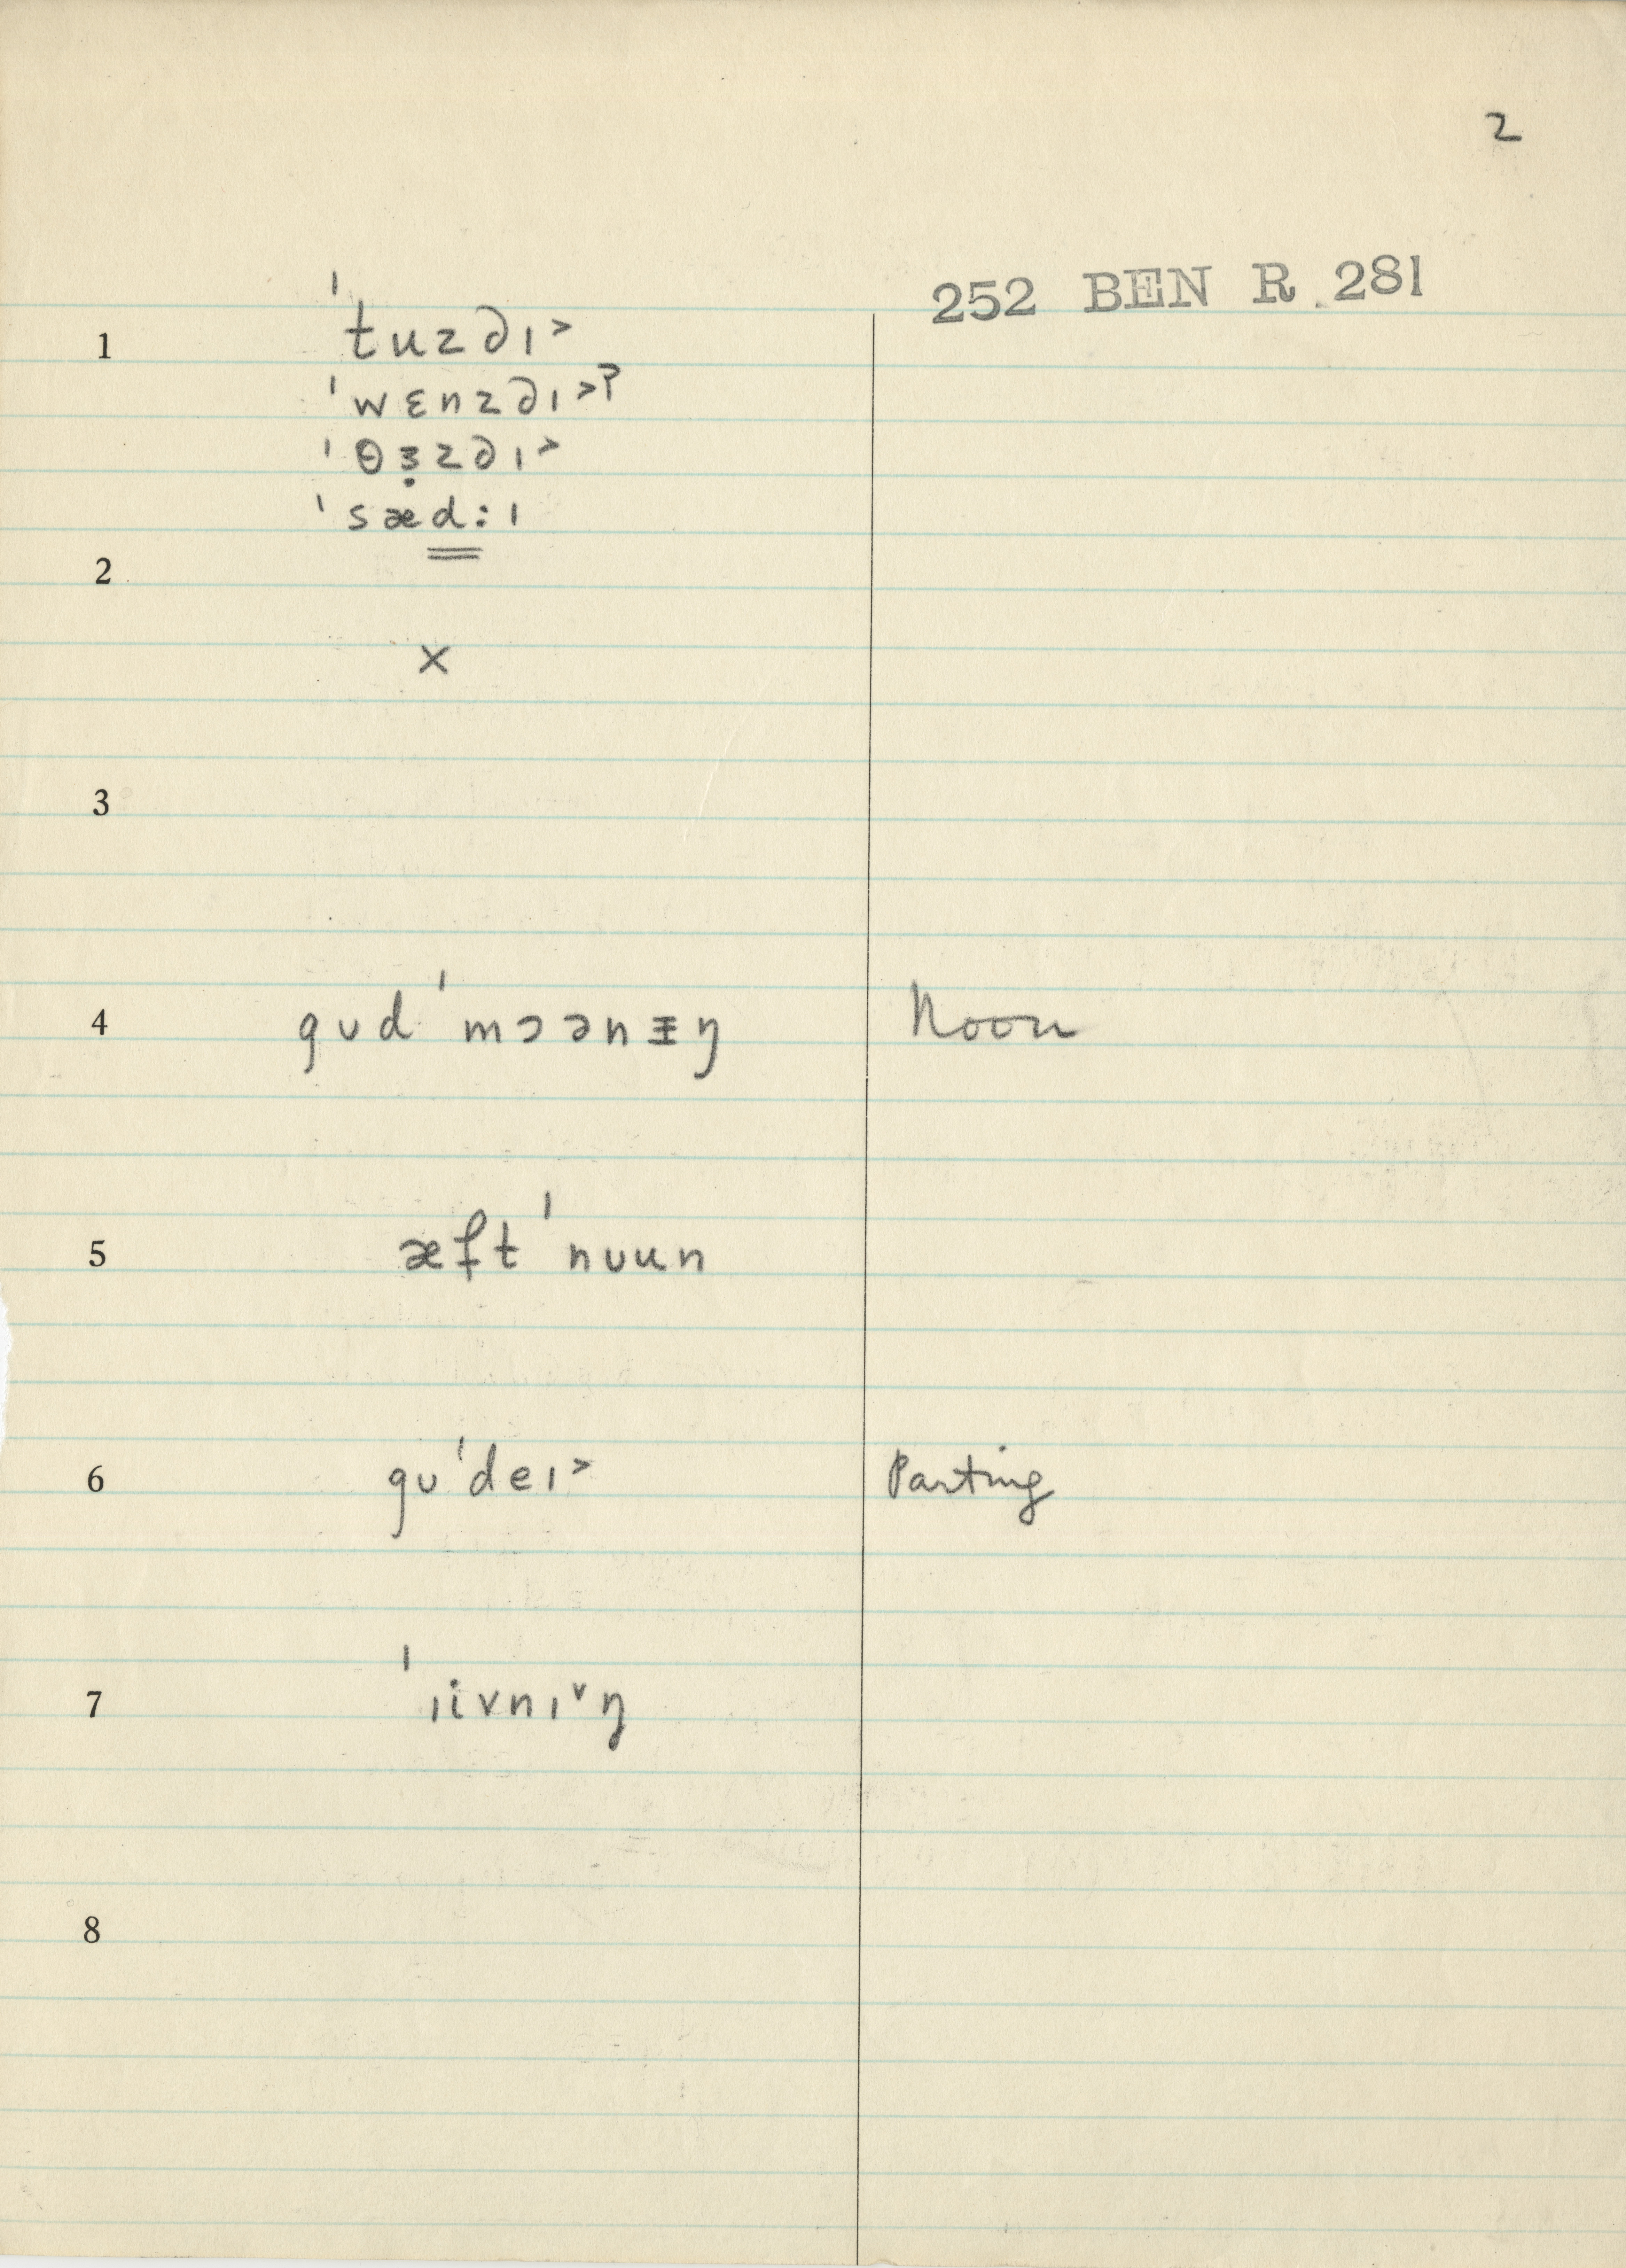 2
252 BEN R. 281
1 ˈtuzdɪ˃
ˈwɛnzdɪ˃?
ˈθɜ̣zdɪ˃
ˈsæd:ɪ
2
×
3
4 gʊd ˈmɔənɪŋ Noon
5 æft ˈnʊun
6 gʊˈdeɪ˃ Parting
7 ˈɪivnɪ˅ŋ
8